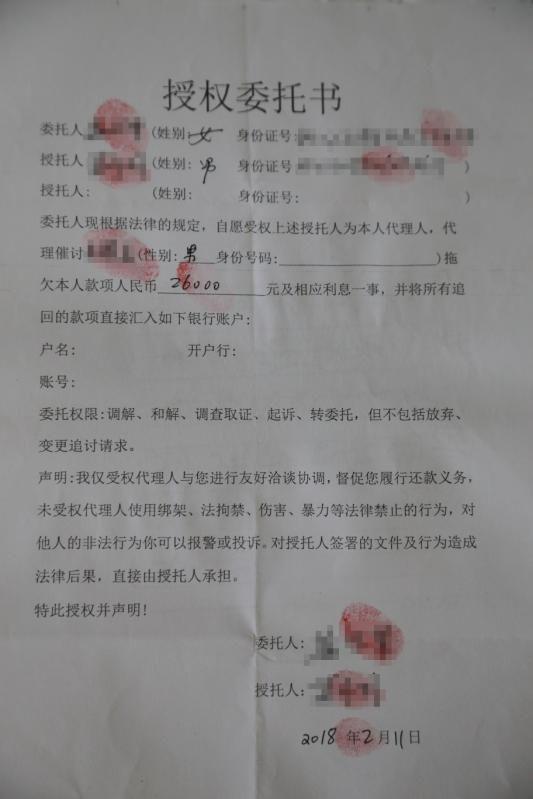 授权委托书
委托人 (姓别: 女 身份证号:
授托人 (姓别: 男 身份证号 )
授托人: (姓别: 身份证号: )
委托人现根据法律的规定，自愿受权上述授托人为本人代理人，代
理催讨 (性别: 男 身份号码: )拖
欠本人款项人民币 26000 元及相应利息一事，并将所有追
回的款项直接汇入如下银行账户:
户名: 开户行:
账号:
委托权限:调解、和解、调查取证、起诉、转委托，但不包括放弃、
变更追讨请求。
声明:我仅受权代理人与您进行友好洽谈协调，督促您履行还款义务，
未受权代理人使用绑架、法拘禁、伤害、暴力等法律禁止的行为，对
他人的非法行为你可以报警或投诉。对授托人签署的文件及行为造成
法律后果，直接由授托人承担。
特此授权并声明!
委托人:
授托人:
2018 年 2 月 11 日